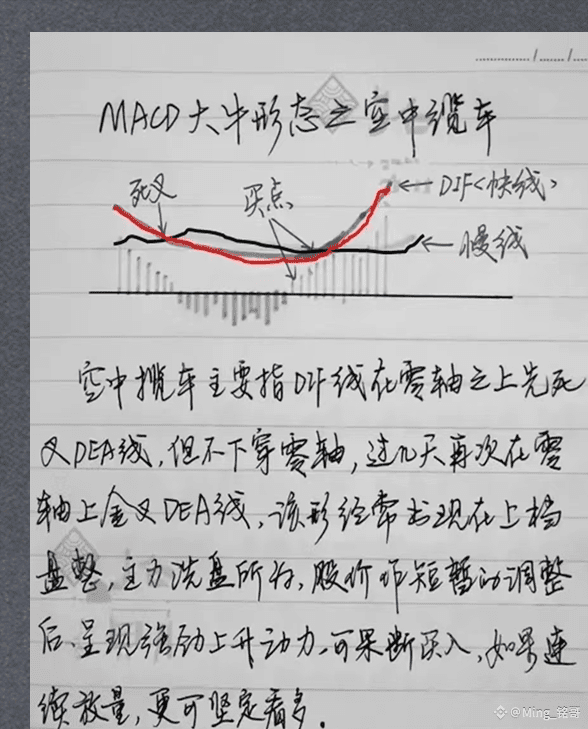 MACD大牛形态之空中缆车
死叉
买点
DIF<快线>
慢线
空中揽车主要指DIF线在零轴之上先死
叉DEA线，但不下穿零轴，过几天再次在零
轴上金叉DEA线，该形经常出现在上档
盘整，主力洗盘所为，股价作短暂的调整
后、呈现强劲上升动力，可果断买入，如果连
续放量，更可坚定看多。
@Ming_铭哥